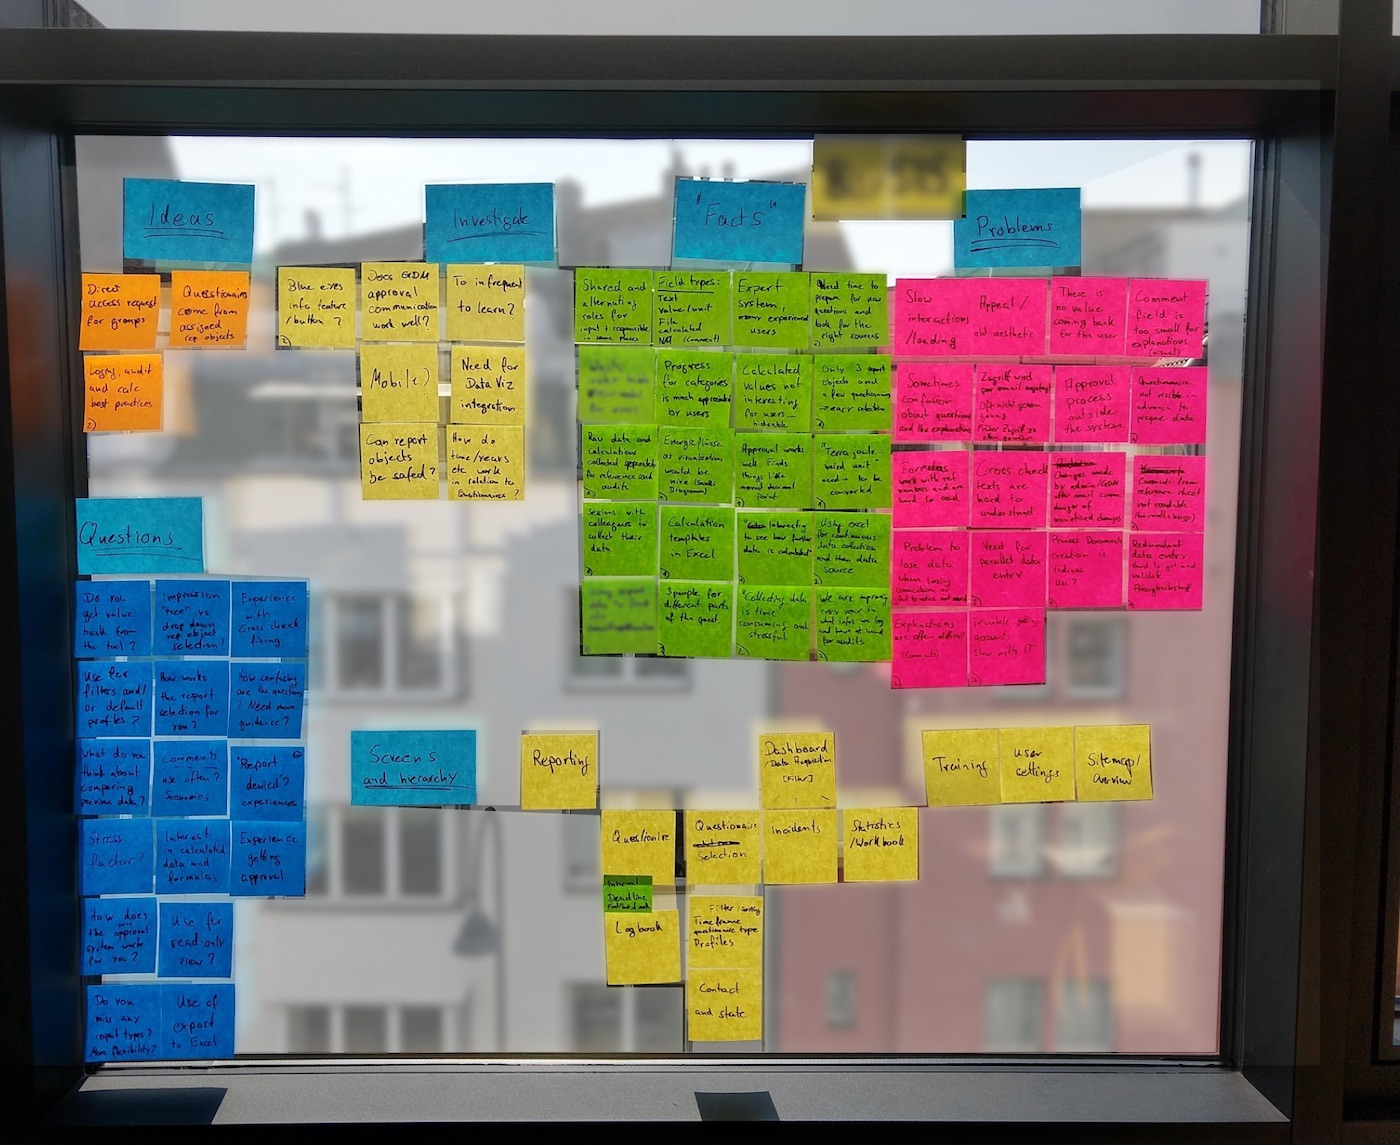 Ideas
Direct
access request
for groups
Questionaires
come from
assigned
rep. objects
Logins, audit
and calc
best practices
Investigate
Blue eyes
info feature
/button ?
Does GDM
approval
communication
work well?
To infrequent
to learn?
Mobile?
Need for
Data Viz
integration
Can report
objects
be safed?
How do
time/years
etc work
in relation to
Questionaires ?
"Facts"
Shared and
alternating
roles for
input + responsible
in some places
Field types:
Text
value/unit
File
calculated
NA (comment)
Expert
system
many experienced
users
Need time to
prepare for new
questions and
look for the
right sources
Progress
for categories
is much appreciated
by users
Calculated
values not
interesting
for users
hideable
Only 3 report
objects and
a few questionaires
→ easy selection
Raw data and
Calculation
collected separately
for reference and
audits
Energieflüsse
as visualization
would be
nice (Sankey
Diagramm)
Approval works
well. Finds
things like
moved decimal
point
"Terra joule"
weird unit
need to be
converted
Sessions with
colleagues to
collect their
data
Calculation
templates
in Excel
Interesting
to see how further
data is calculated"
Using excel
for continuous
data collection
and then data
source
3 people for
different parts
of the quest.
"Collecting data
is time
consuming and
stressful
We are improving
every year in
what infos we log
and have at hand
for audits
Problems
Slow
interactions
/loading
Appeal /
old aesthetic
There is
no value
coming back
for the user
Comment
field is
too small for
explanations
(visual)
Sometimes
confusion
about questions
and the explanations
Zugriff wird
per email
Oft nicht genau
Früher Zugriff
Approval
process
outside
the system
Questionnaire
not visible in
advance to
prepare data
Formulas
work with ref
numbers and are
hard to read
Cross check
texts are
hard to
understand
Changes made
by admin/GDM
after email comm.
danger of
unnoticed changes
Comments from
reference sheet
not readable
Problem to
lose data
when losing
connection or
Need for
parallel data
entry
Process Document
creation is
tedious
Use?
Redundant
data entry
hard to get and
validate
Explanations
are often
(comments)
Trouble getting
accounts
slow with IT
Questions
Do you
get value
back from
the tool ?
Impression
"tree" vs
drop down
rep. object
selection?
Experience
with
Cross check
fixing
Use for
filters and/
or default
profiles ?
How works
the report
selection for
you ?
How confusing
are the questions
? Need more
guidance?
What do you
think about
comparing
previous data?
Comments
use often?
Scenarios
"Report
denied"?
experiences
Stress
factor?
Interest
in calculated
data and
formulas
Experience
getting
approval
How does
the approval
system work
for you ?
Use for
read only
view ?
Do you
miss any
input types?
More flexibility?
Use of
export
to Excel
Screens
and hierarchy
Reporting
Dashboard
/Data Aquisition
[Filter]
Training
User
settings
Sitemap/
Overview
Questionire
Questionaire
Selection
Incidents
Statistics
/Workbook
Internal
Deadline
Logbook
Filter/sorting
Timeframe
questionaire type
Profiles
Contact
and state